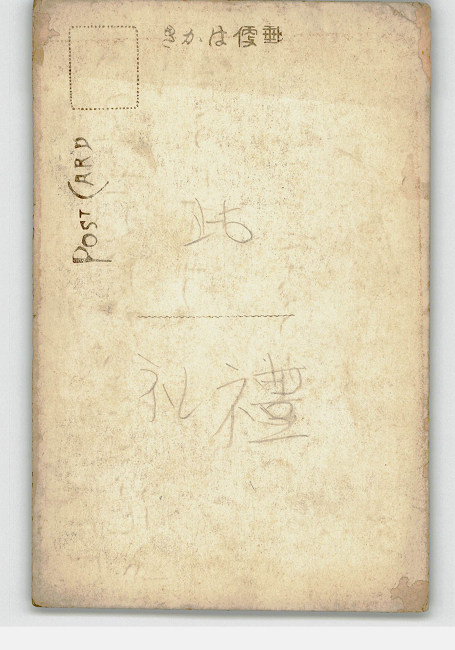 郵便はかき
POST CARD
礼 禮